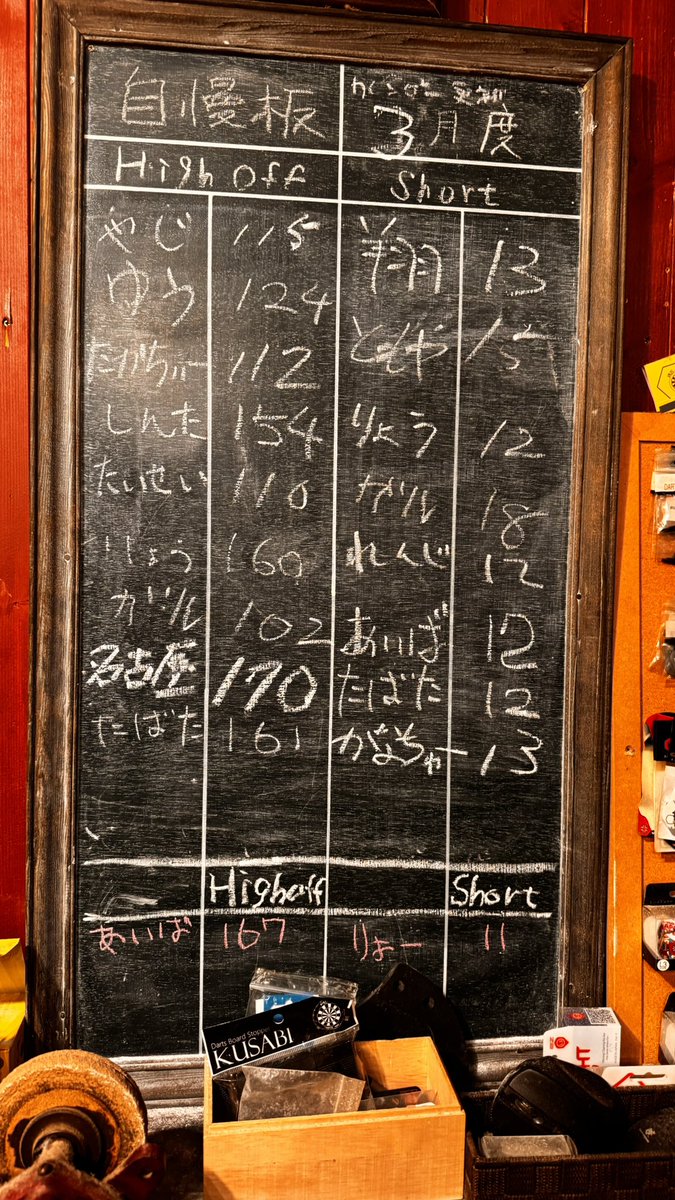 自慢板
3月度
High Off Short
やじ 115 翔 13
ゆう 124
112 ともや 15
しんた 154 りょう 12
たいせい 110 ガル 18
りょう 160 れんじ 12
ガル 102 あいば 12
名古屋 170 たばた 12
たばた 161 がなちゃー 13
Highoff Short
あいば 167 りょー 11
Darts Board Stopper
KUSABI